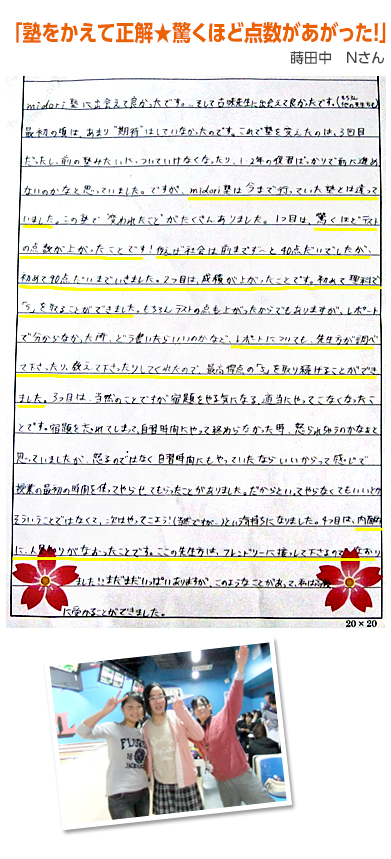 「塾をかえて正解★驚くほど点数があがった!」
蒔田中　Nさん
midori塾に出会えて良かったです。…そして古味先生に出会えて良かったです。(もちろん他の先生も)
最初の頃は、あまり"期待"はしていなかったのです。これで塾を変えたのは、3回目
だったし、前の塾みたいに、ついていけなくなったり、1・2年の復習ばっかりで前に進め
ないのかなと思っていました。ですが、midori塾は今まで行っていた塾とは違って
いました。この塾で"変われたこと"がたくさんありました。1つ目は、驚くほどテスト
の点数が上がったことです!例えば社会は前まで〜と40点だいでしたが、
初めて90点だいまでいきました。2つ目は、成績が上がったことです。初めて理科で
「5」を取ることができました。もちろんテストの点も上がったからでもありますが、レポート
で分からなかった所、どう書いたらいいのかなど、レポートについても、先生方が調べ
て下さったり、教えて下さったりしてくれたので、最高得点の「5」を取り続けることができ
ました。3つ目は、当然のことですが宿題をやる気になる、適当にやってこなくなったこ
とです。宿題を忘れてしまって、自習時間にやって終わらなかった時、怒られちゃうのかなぁと
思っていましたが、怒るのではなく自習時間にもやっていたならいいからって感じで
授業の最初の時間を使ってやらせてもらったことがありました。だからといってやらなくてもいいとか
そういうことではなくて、次はやってこよう!(当然ですが…)という気持ちになりました。4つ目は、内面的
に、人見知りがなおったことです。ここの先生方は、フレンドリーに接して下さるので、なおり
ました!!まだまだいっぱいありますが、このようなことがあって、私は高校
に受かることができました。
20×20